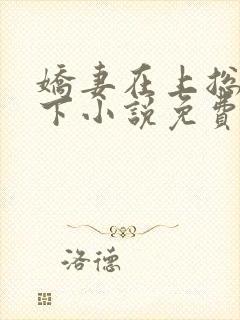 嬌妻在上总
下小說免費
洛德